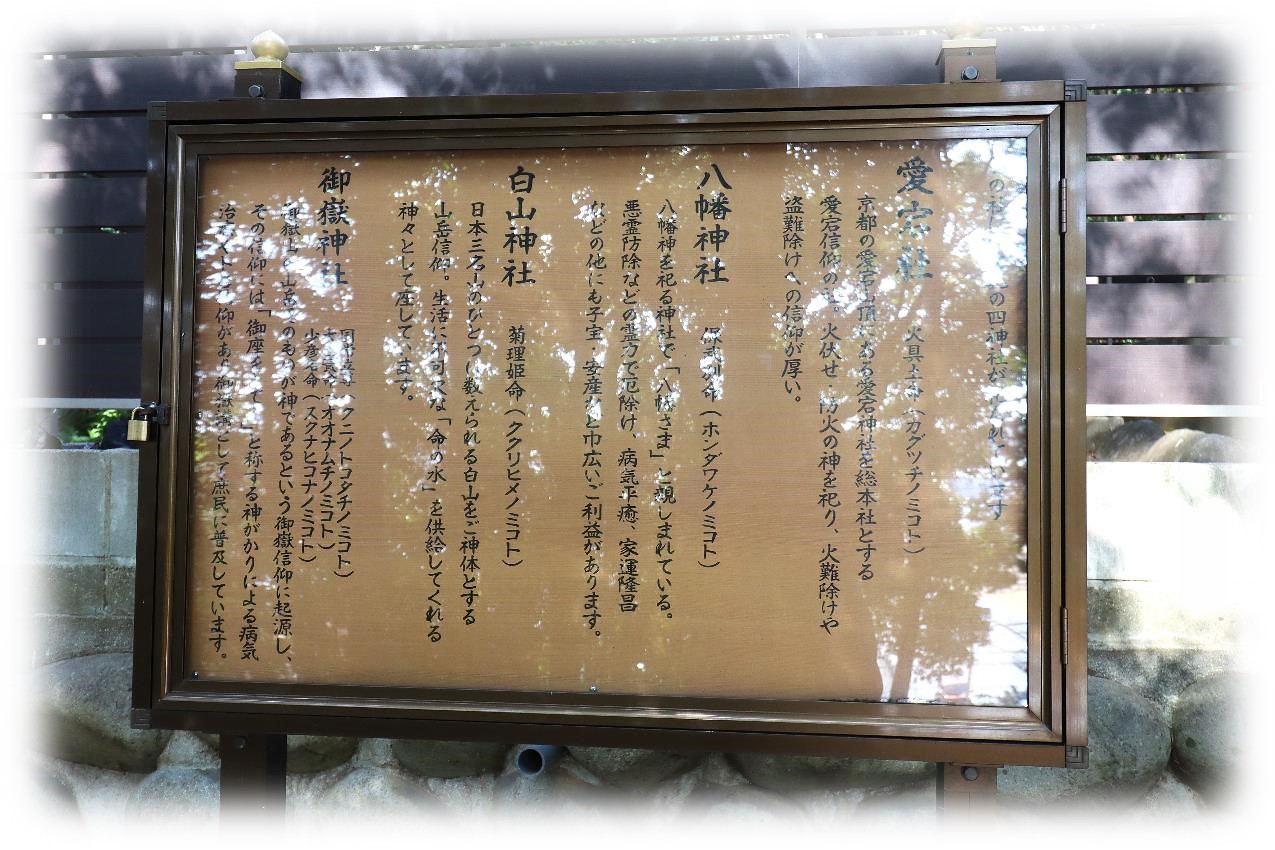 の四神社が
愛宕社 火具土命（カグツチノミコト）
京都の愛宕山頂にある愛宕神社を総本社とする
愛宕信仰の社。火伏せ・防火の神を祀り、火難除けや
盗難除けへの信仰が厚い。
八幡神社 （ホンダワケノミコト）
八幡神を祀る神社で「八幡さま」と親しまれている。
悪霊防除などの霊力で厄除け、病気平癒、家運隆昌
などの他にも子宝・安産など巾広いご利益があります。
白山神社 菊理姫命（ククリヒメノミコト）
日本三名山のひとつに数えられる白山をご神体とする
山岳信仰。生活に不可欠な「命の水」を供給してくれる
神々として座しています。
御嶽神社 （クニノトコタチノミコト）
（オオナムチノミコト）
少彦名命（スクナヒコナノミコト）
そのものが神であるという御嶽信仰に起源し、
その信仰には「御座」と称する神がかりによる病気
信仰があり御嶽講として庶民に普及しています。